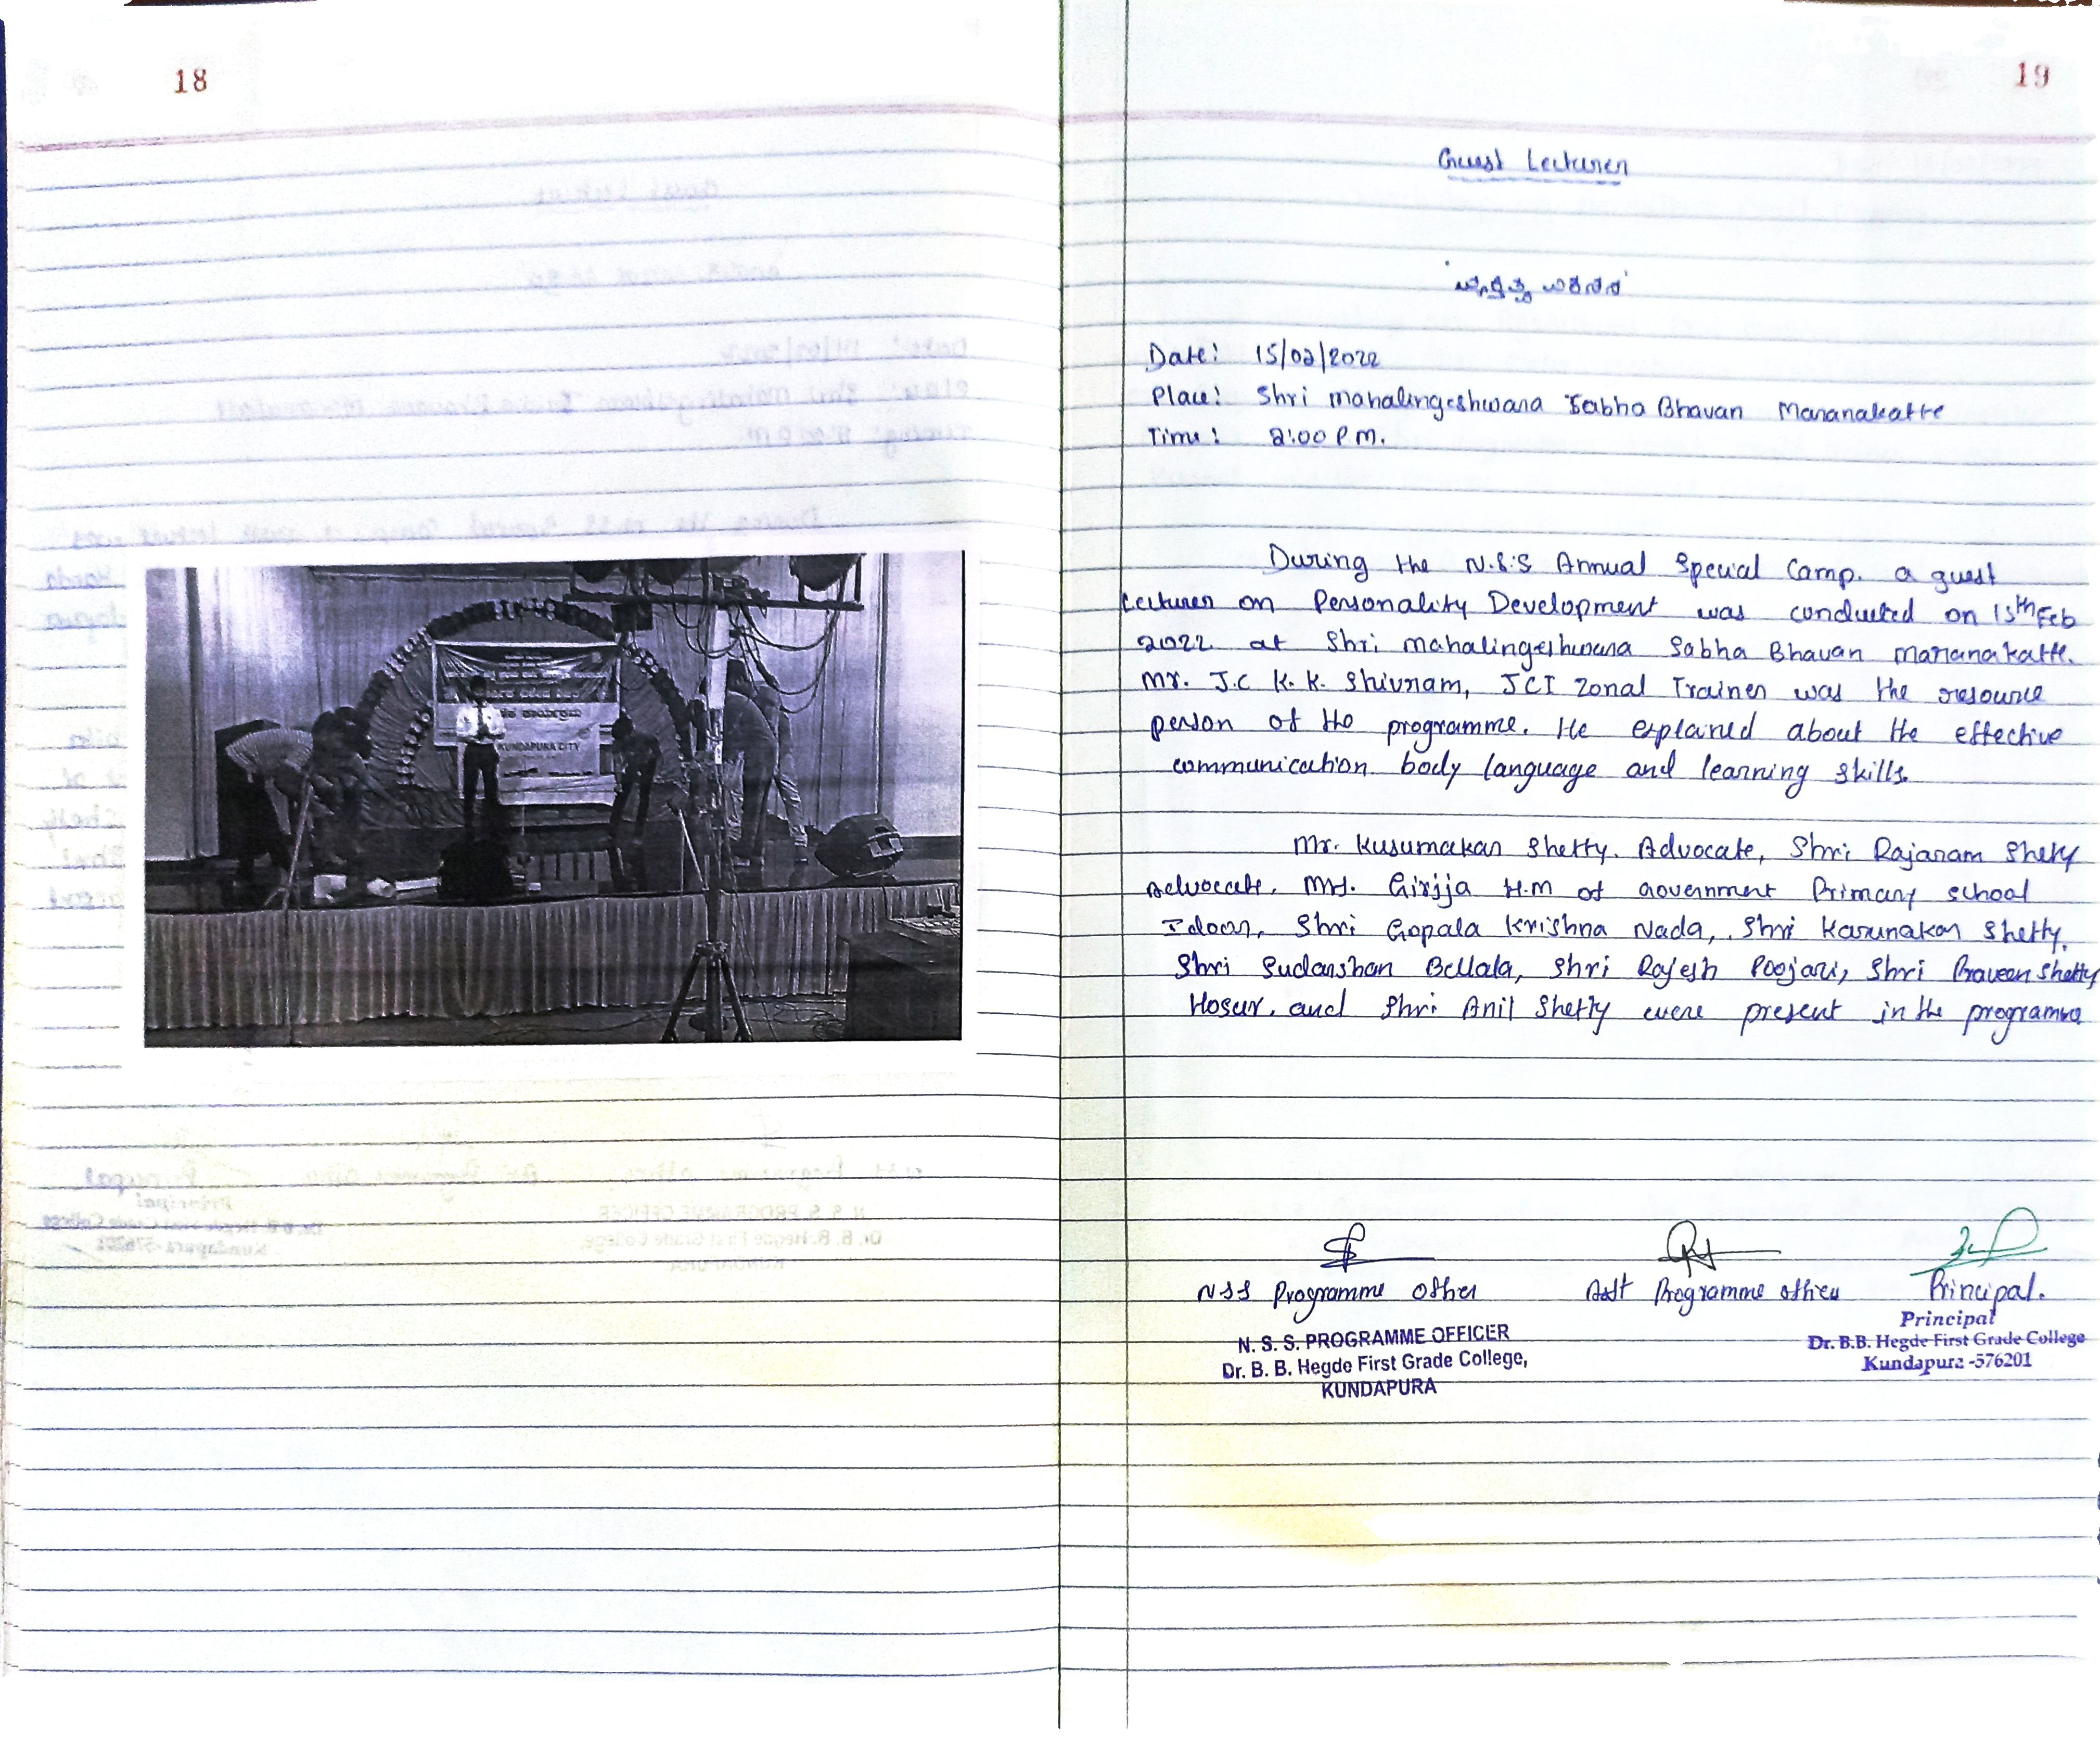 18
KUNDAPURA CITY
19
Guest Lecturer
'ವ್ಯಕ್ತಿತ್ವ ವಿಕಸನ'
Date: 15/02/2022
Place: Shri Mahalingeshwara Sabha Bhavan Maranakatte
Time: 2:00 P.M.
During the N.S.S Annual Special Camp. a guest
Lecturer on Personality Development was conducted on 15th Feb
2022 at Shri Mahalingeshwara Sabha Bhavan Maranakatte.
Mr. J.C K.K. Shivram, JCI Zonal Trainer was the resource
person of the programme. He explained about the effective
communication body language and learning skills.
Mr. Kusumakar Shetty. Advocate, Shri Rajaram Shety
advocate, Mrs. Girijja H.M of Government Primary School
Shri Gopala Krishna Nada, Shri Karunakar Shetty,
Shri Sudarshan Bellala, Shri Rajesh Poojari, Shri Praveen Shetty
Hosur, and Shri Anil Shetty were present in the programme
NSS Programme Officer Asst Programme officer Principal.
N. S. S. PROGRAMME OFFICER
Dr. B. B. Hegde First Grade College,
KUNDAPURA
Principal
Dr. B.B. Hegde First Grade College
Kundapura -576201